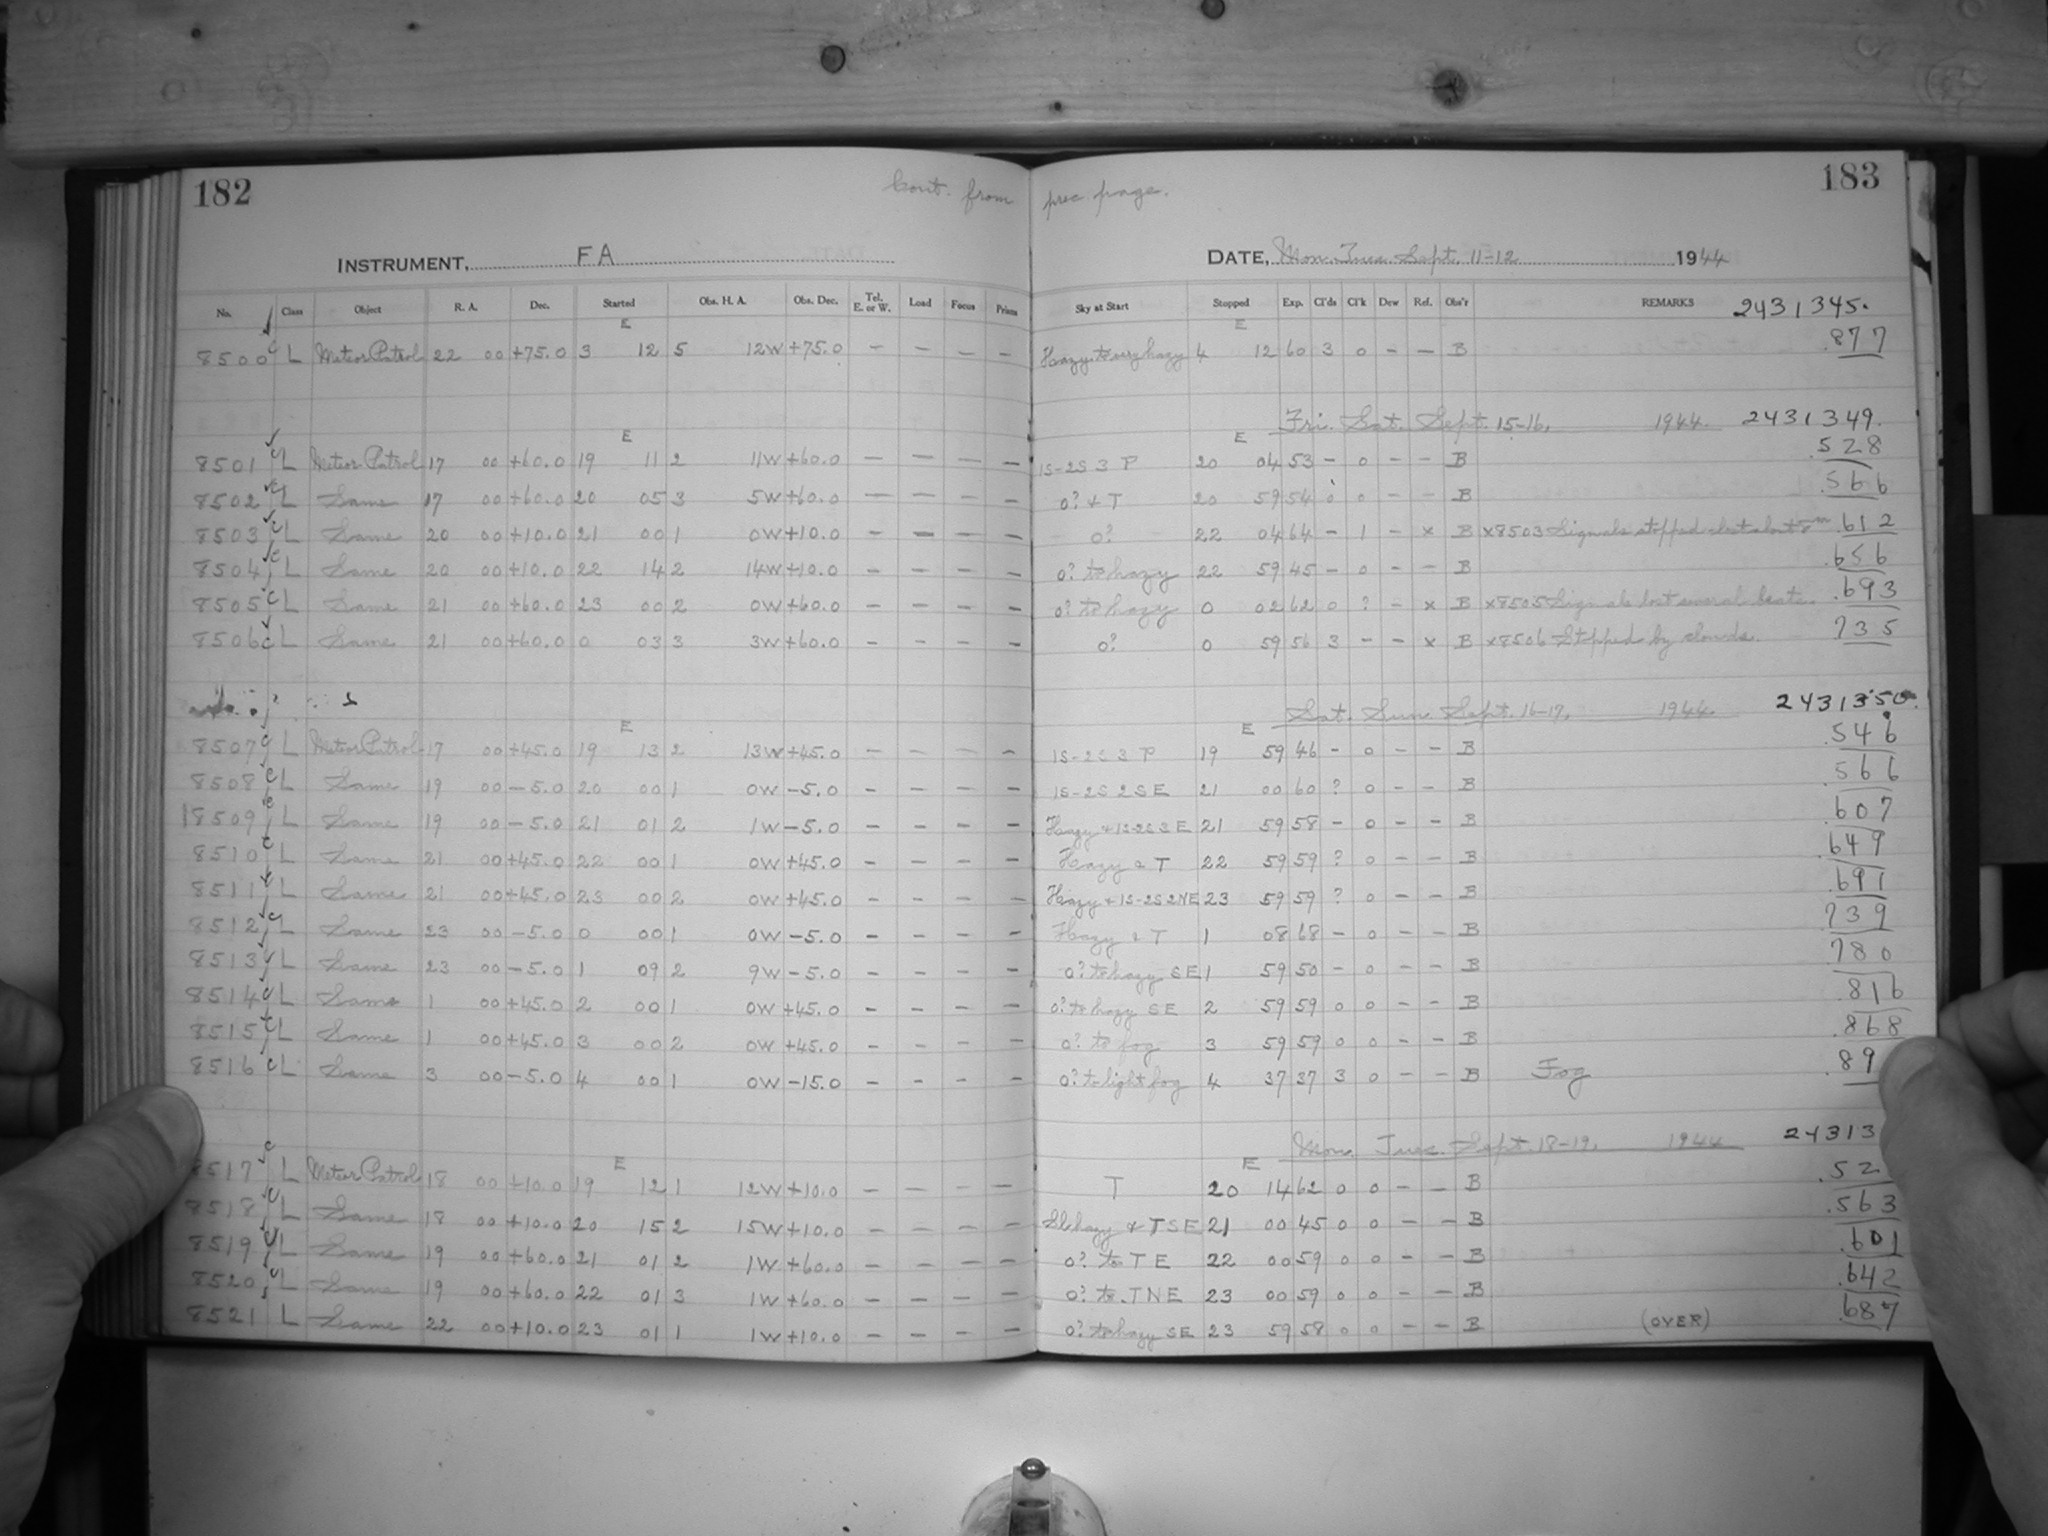 182 Cont. from prec. page. 183
INSTRUMENT, FA DATE, Mon. Tues. Sept. 11-12 1944
No. Class Object R. A. Dec. Started Obs. H. A. Obs. Dec. Tel. E. or W. Load Focus Prism Sky at Start Stopped Exp. Cl'ds Cl'k Dew Ref. Obs'r REMARKS 2431345.
E E
8500 c L Meteor Patrol 22 00 +75.0 3 12 5 12W +75.0 — — — — Hazy to very hazy 4 12 60 3 0 – — B .877
Fri. Sat. Sept. 15-16, 1944. 2431349.
E E
8501 c L Meteor Patrol 17 00 +60.0 19 11 2 11W +60.0 — — — — 1S-2S 3 P 20 04 53 – 0 – – B .528
8502 c L Same 17 00 +60.0 20 05 3 5W +60.0 — — — — 0? & T 20 59 54 0 0 – – B .566
8503 c L Same 20 00 +10.0 21 00 1 0W +10.0 – – – – 0? 22 04 64 – 1 – x B x8503 Signals stopped .612
8504 c L Same 20 00 +10.0 22 14 2 14W +10.0 – – – – 0? to hazy 22 59 45 – 0 – – B .656
8505 c L Same 21 00 +60.0 23 00 2 0W +60.0 – – – – 0? to hazy 0 02 62 0 ? – x B x8505 Signals lost several beats. .693
8506 c L Same 21 00 +60.0 0 03 3 3W +60.0 – – – – 0? 0 59 56 3 – – x B x8506 Stopped by clouds. 735
Sat. Sun. Sept. 16-17, 1944. 2431350.
E E
8507 c L Meteor Patrol 17 00 +45.0 19 13 2 13W +45.0 – – – – 1S-2S 3 P 19 59 46 – 0 – – B .546
8508 c L Same 19 00 –5.0 20 00 1 0W –5.0 – – – – 1S-2S 2 SE 21 00 60 ? 0 – – B .566
8509 c L Same 19 00 –5.0 21 01 2 1W –5.0 – – – – Hazy + 1S-2S 3 E 21 59 58 – 0 – – B .607
8510 c L Same 21 00 +45.0 22 00 1 0W +45.0 – – – – Hazy & T 22 59 59 ? 0 – – B .649
8511 c L Same 21 00 +45.0 23 00 2 0W +45.0 – – – – Hazy + 1S-2S 2 NE 23 59 59 ? 0 – – B .691
8512 c L Same 23 00 –5.0 0 00 1 0W –5.0 – – – – Hazy & T 1 08 68 – 0 – – B 739
8513 c L Same 23 00 –5.0 1 09 2 9W –5.0 – – – – 0? to hazy SE 1 59 50 – 0 – – B 780
8514 c L Same 1 00 +45.0 2 00 1 0W +45.0 – – – – 0? to hazy SE 2 59 59 0 0 – – B .816
8515 c L Same 1 00 +45.0 3 00 2 0W +45.0 – – – – 0? to fog 3 59 59 0 0 – – B .868
8516 c L Same 3 00 –5.0 4 00 1 0W –15.0 – – – – 0? to light fog 4 37 37 3 0 – – B Fog .89
Mon. Tues. Sept. 18-19, 1944 24313
E E
8517 c L Meteor Patrol 18 00 +10.0 19 12 1 12W +10.0 – – – – T 20 14 62 0 0 – – B .52
8518 c L Same 18 00 +10.0 20 15 2 15W +10.0 – – – – Sl. hazy & T SE 21 00 45 0 0 – – B .563
8519 c L Same 19 00 +60.0 21 01 2 1W +60.0 – – – – 0? to T E 22 00 59 0 0 – – B .601
8520 c L Same 19 00 +60.0 22 01 3 1W +60.0 – – – – 0? to T NE 23 00 59 0 0 – – B .642
8521 L Same 22 00 +10.0 23 01 1 1W +10.0 – – – – 0? to hazy SE 23 59 58 0 0 – – B (OVER) .687